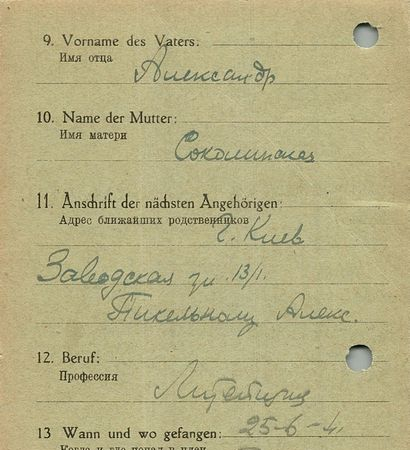 9. Vorname des Vaters:
Имя отца
Александр
10. Name der Mutter:
Имя матери
11. Anschrift der nächsten Angehörigen:
Адрес ближайших родственников
г. Киев
Заводская ул. 13/1.
Алекс.
12. Beruf:
Профессия
13 Wann und wo gefangen: 25-6-4.
Когда и где попал в плен